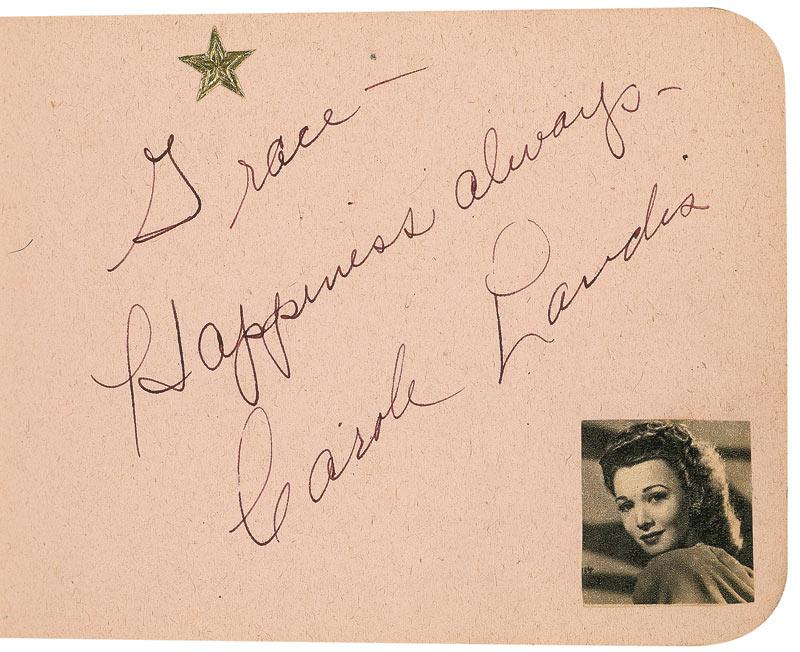 Grace —
Happiness always —
Carole Landis